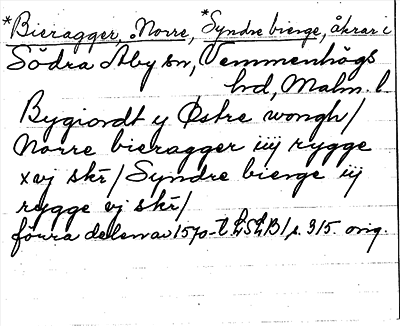 *Bieragger, Norre, *Syndre bierge, åkrar i
Södra Åby sn, Vemmenhögs
hd, Malm. l.
Bygiondt y Østre wongh/
Norre bieragger iiij rygge
xvj skr/ Syndre bierge iij
rygge vj skr/
förra delen av 1570-t LSLB/ s. 315. orig.